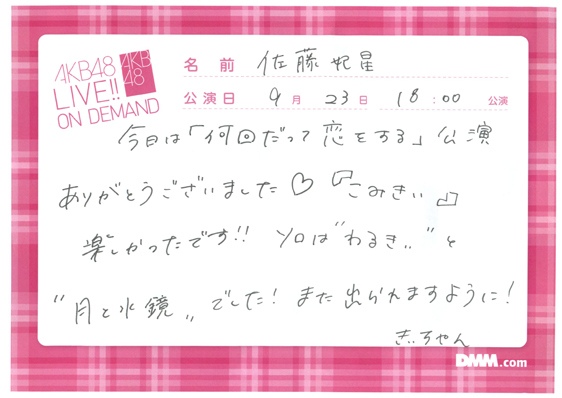 AKB48
LIVE!!
ON DEMAND
AKB
48
名前 佐藤妃星
公演日 9月23日 18:00 公演
今日は「何回だって恋をする」公演
ありがとうございました♡『こみきぃ』
楽しかったです!! ソロは"わるきぃ"と
"月と水鏡"でした! また出られますように!
きぃちゃん
DMM.com